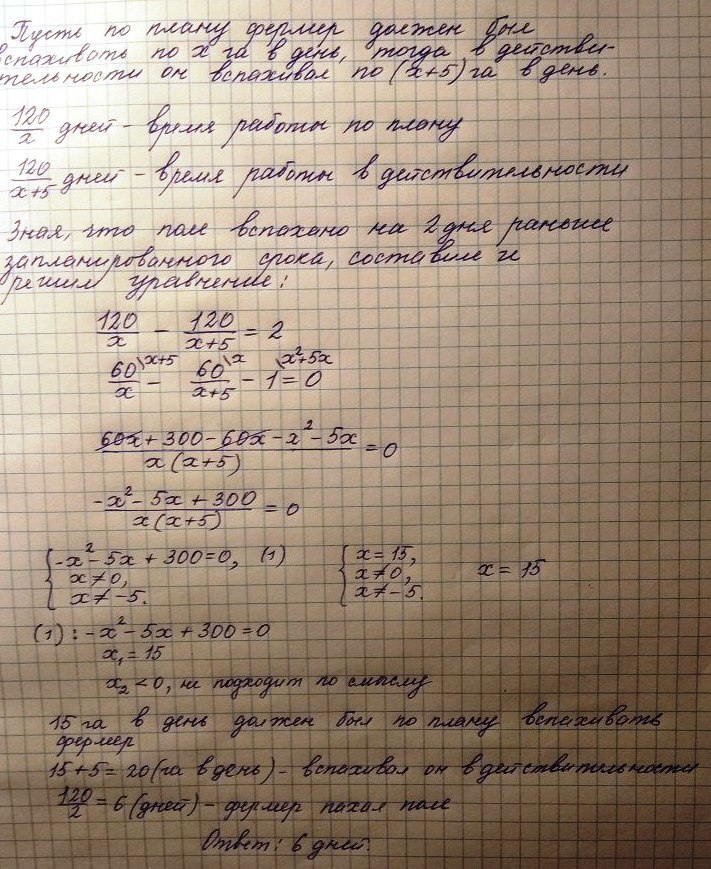 Пусть по плану фермер должен был
вспахивать по x га в день, тогда в действи-
тельности он вспахивал по (x+5) га в день.
120/x дней - время работы по плану
120/(x+5) дней - время работы в действительности
Зная, что поле вспахано на 2 дня раньше
запланированного срока, составим и
решим уравнение:
120/x - 120/(x+5) = 2
60/x \x+5 - 60/(x+5) \x - 1 \x²+5x = 0
(60x + 300 - 60x - x² - 5x)/(x(x+5)) = 0
(-x² - 5x + 300)/(x(x+5)) = 0
{ -x² - 5x + 300 = 0, (1) { x = 15,
x ≠ 0, x ≠ 0, x = 15
x ≠ -5. x ≠ -5.
(1): -x² - 5x + 300 = 0
x₁ = 15
x₂ < 0, не подходит по смыслу
15 га в день должен был по плану вспахивать
фермер
15 + 5 = 20 (га в день) - вспахивал он в действительности
120/2 = 6 (дней) - фермер пахал поле
Ответ: 6 дней.